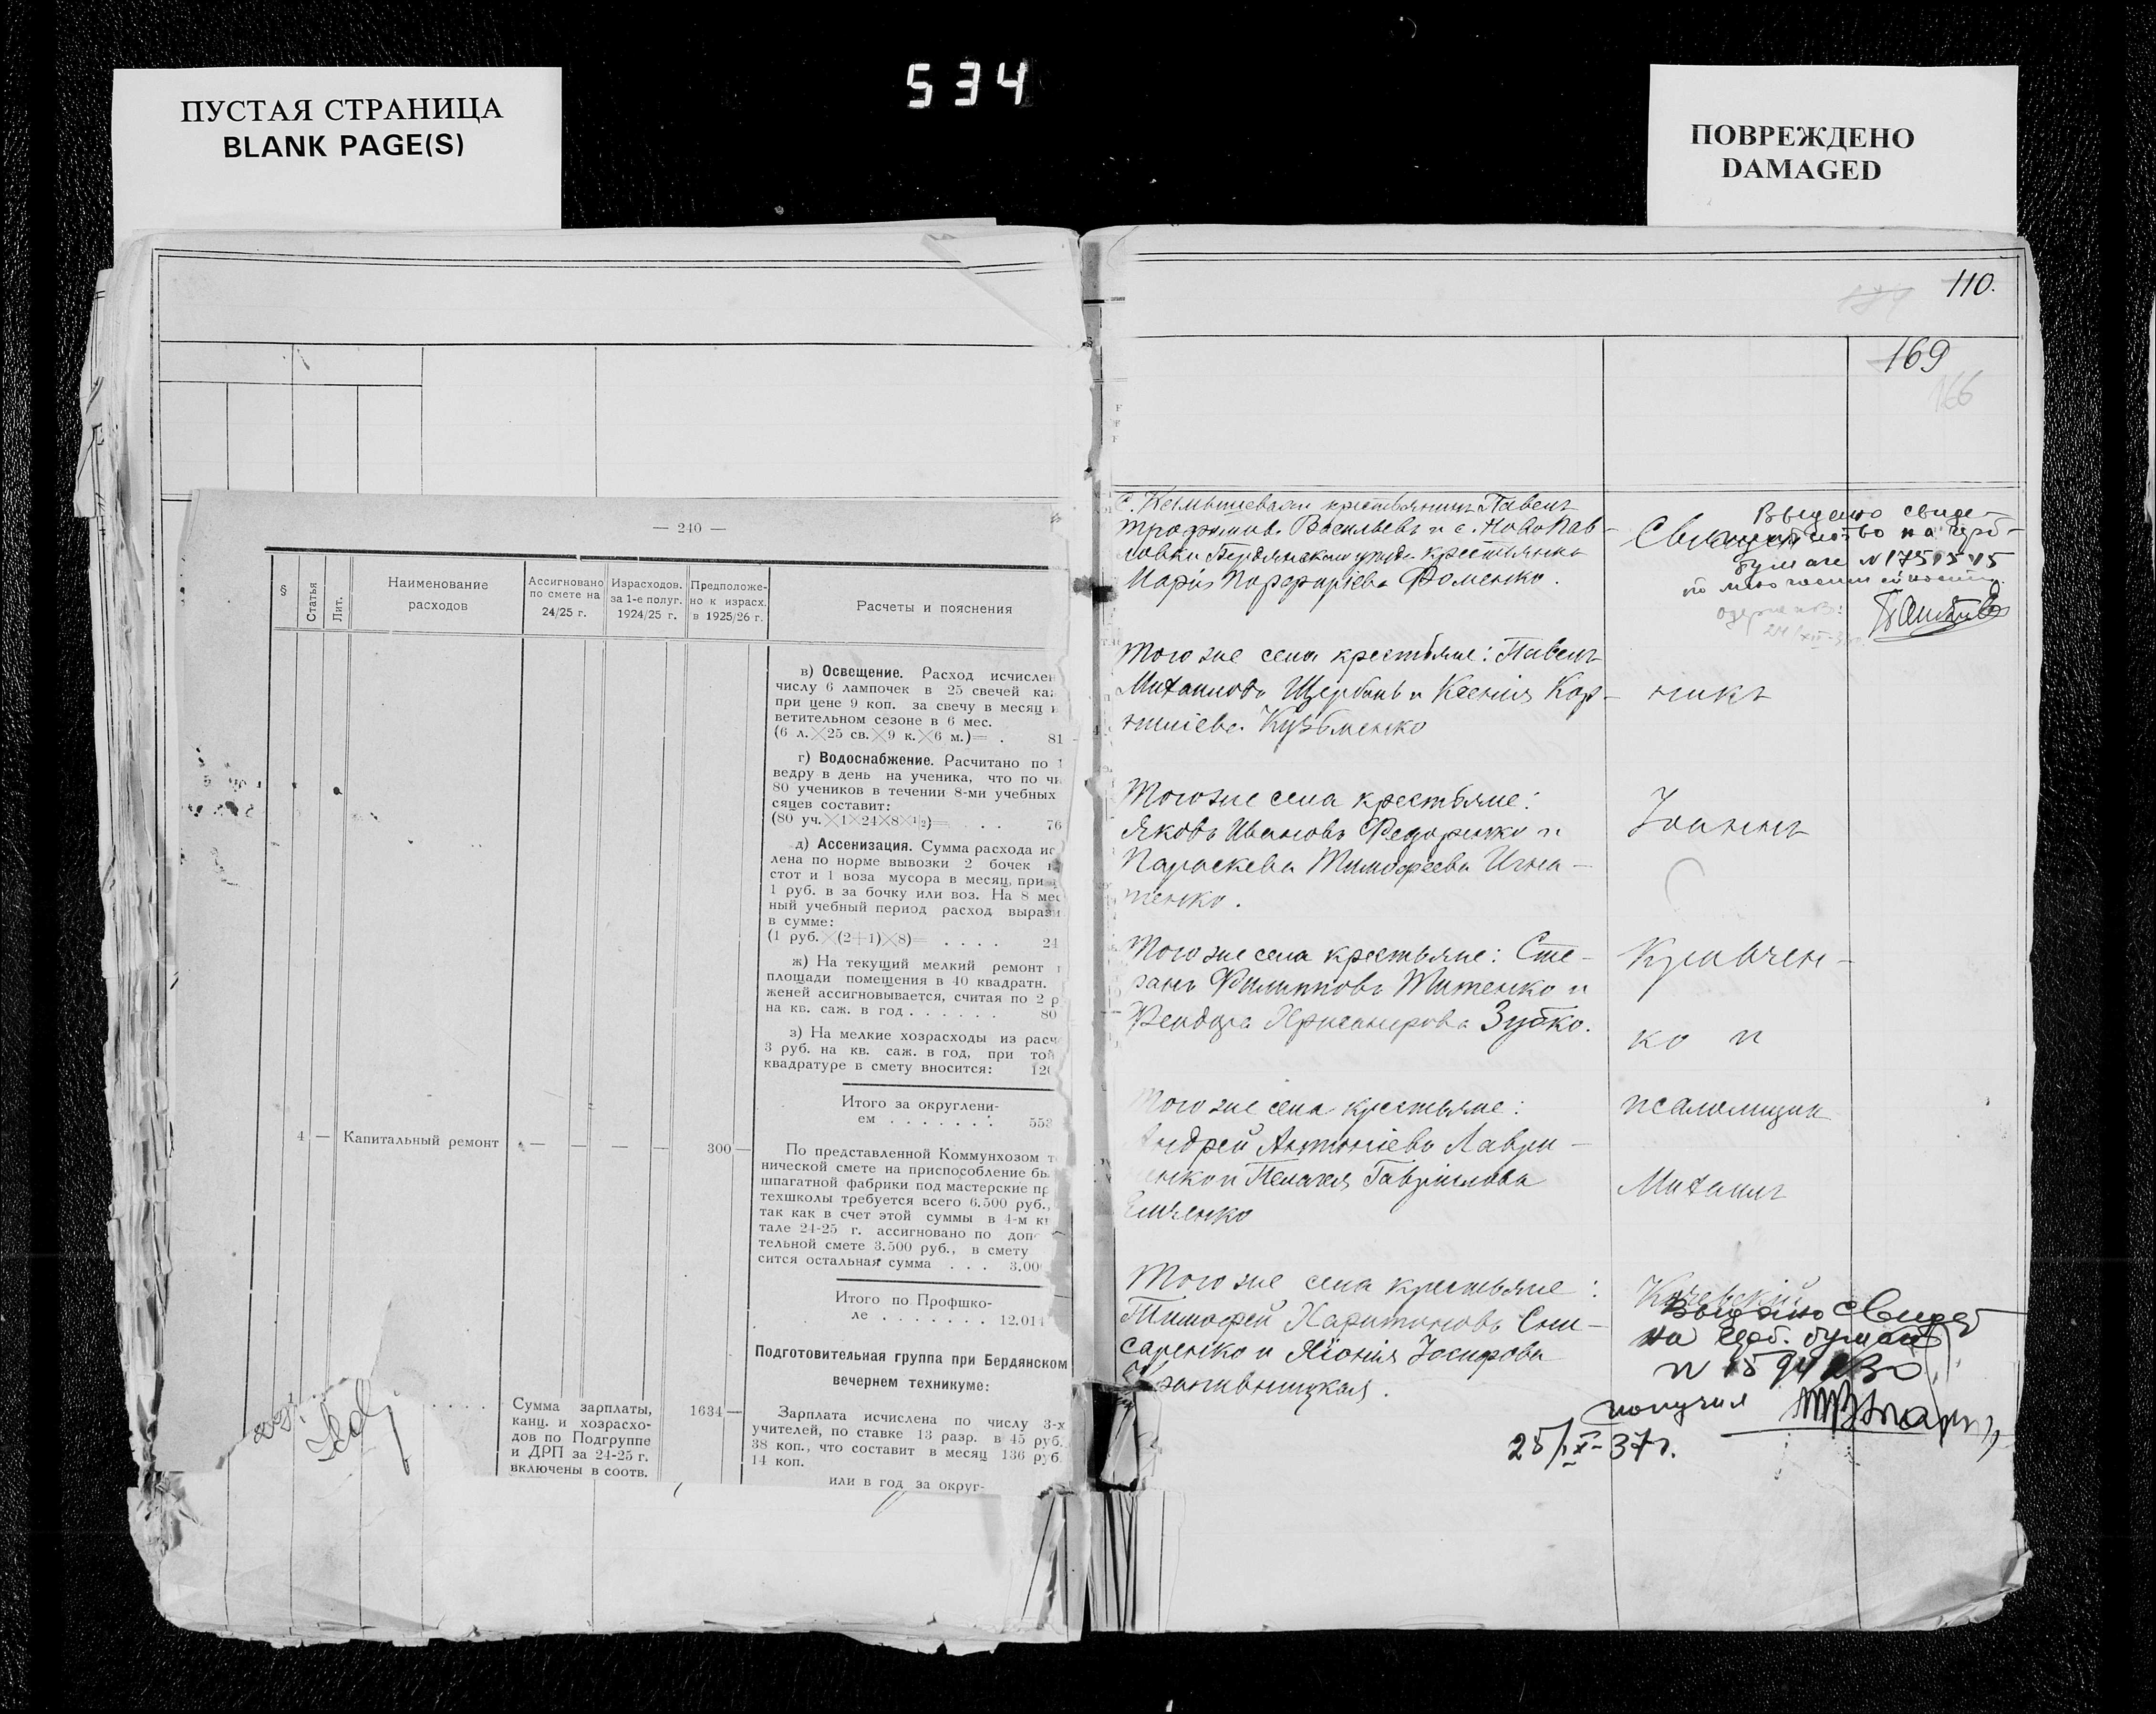 ПУСТАЯ СТРАНИЦА
BLANK PAGE(S)
534
ПОВРЕЖДЕНО
DAMAGED
— 240 —
§
Статья
Лит.
Наименование
расходов
Ассигновано
по смете на
24/25 г.
Израсходов.
за 1-е полуг.
1924/25 г.
Предположе-
но к израсх.
в 1925/26 г.
Расчеты и пояснения
в) Освещение. Расход исчислен
числу 6 лампочек в 25 свечей
при цене 9 коп. за свечу в месяц
ветительном сезоне в 6 мес.
(6 л.×25 св.×9 к.×6 м.)= . 81
г) Водоснабжение. Расчитано по 1
ведру в день на ученика, что по
80 учеников в течении 8-ми учебных
сяцев составит:
(80 уч.×1×24×8×½)= . . 76
д) Ассенизация. Сумма расхода
лена по норме вывозки 2 бочек
стот и 1 воза мусора в месяц, при
1 руб. в за бочку или воз. На 8 мес
ный учебный период расход вырази
в сумме:
(1 руб.×(2+1)×8)= . . . . 24
ж) На текущий мелкий ремонт
площади помещения в 40 квадратн.
женей ассигновывается, считая по 2 р
на кв. саж. в год . . . . . . 80
з) На мелкие хозрасходы из расч
3 руб. на кв. саж. в год, при той
квадратуре в смету вносится: 120
Итого за округлени-
ем . . . . . . . 553
4 — Капитальный ремонт — — — — 300 —
По представленной Коммунхозом
нической смете на приспособление
шпагатной фабрики под мастерские
техшколы требуется всего 6.500 руб.,
так как в счет этой суммы в 4-м
тале 24-25 г. ассигновано по
тельной смете 3.500 руб., в смету
сится остальная сумма . . . 3.00
Итого по Профшко-
ле . . . . . . . 12.014
Подготовительная группа при Бердянском
вечернем техникуме:
Сумма зарплаты,
канц. и хозрасхо-
дов по Подгруппе
и ДРП за 24-25 г.
включены в соотв.
1634 —
Зарплата исчислена по числу 3-х
учителей, по ставке 13 разр. в 45 руб.
38 коп., что составит в месяц 136 руб.
14 коп.
или в год за округ-
110.
169
166
крестьянинъ Павелъ
Трофимовъ Васильевъ и с. Новопав-
ловки Бердянскаго уезда крестьянка
Марія Порфирiева Фоменко.
Того же села крестьяне: Павелъ
Михаиловъ Щербань и Ксенія Кор-
ниліева Кузьменко
Того же села крестьяне:
Яковъ Ивановъ Федоренко и
Параскева Тимофеева Игна-
тенко.
Того же села крестьяне: Сте-
фанъ Филипповъ Титенко и
Феодора Зубко.
Того же села крестьяне:
Андрей Антоніевъ Лаври-
енко и Пелагея Гаврiилова
Того же села крестьяне:
Тимофей Харитоновъ Сли-
саренко и Іосифова
Выдано свиде-
тельство на герб-
бумаге № 1751515
никъ
Іоаннъ
Кравчен-
ко и
псаломщик
Михаилъ
Выдано свидет
на герб. бумаге
получил
25/IX-37г.